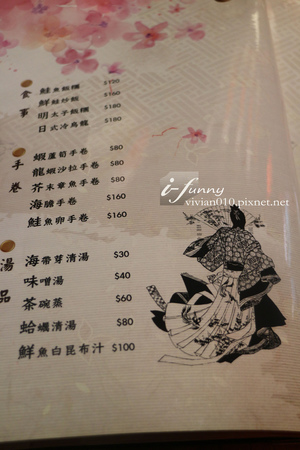 食事
鮭魚飯糰 $120
鮮鮭炒飯 $160
明太子飯糰 $180
日式冷烏龍 $180
手卷
蝦蘆筍手卷 $80
龍蝦沙拉手卷 $80
芥末章魚手卷 $80
海膽手卷 $160
鮭魚卵手卷 $160
湯品
海帶芽清湯 $30
味噌湯 $40
茶碗蒸 $60
蛤蠣清湯 $80
鮮魚白昆布汁 $100
i-funny
vivian010.pixnet.net